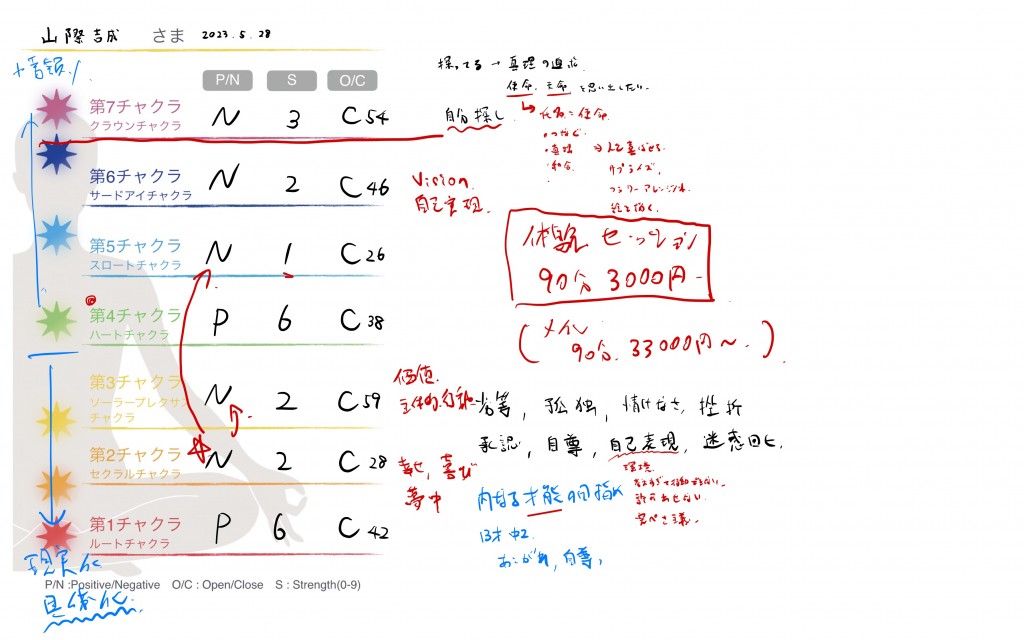 山際吉成 さま 2023.5.28
P/N S O/C
探ってる → 真理の追求
使命、天命 を思い出したい
第7チャクラ
クラウンチャクラ
N 3 C54
自分探し
使命
第6チャクラ
サードアイチャクラ
N 2 C46
Vision
自己実現
サプライズ
フラワーアレンジメント
絵を描く
体験セッション
90分 3000円
第5チャクラ
スロートチャクラ
N 1 C26
第4チャクラ
ハートチャクラ
P 6 C38
90分 33000円〜
第3チャクラ
ソーラープレクサス
チャクラ
N 2 C59
価値
劣等, 孤独, 情けなさ, 挫折
承認, 自尊, 自己表現, 迷惑
第2チャクラ
セクラルチャクラ
N 2 C28
幸せ, 喜び
夢中
環境
内なる才能
第1チャクラ
ルートチャクラ
P 6 C42
13才 中2
あこがれ, 自尊
現実化
具像化
P/N :Positive/Negative O/C : Open/Close S : Strength(0-9)